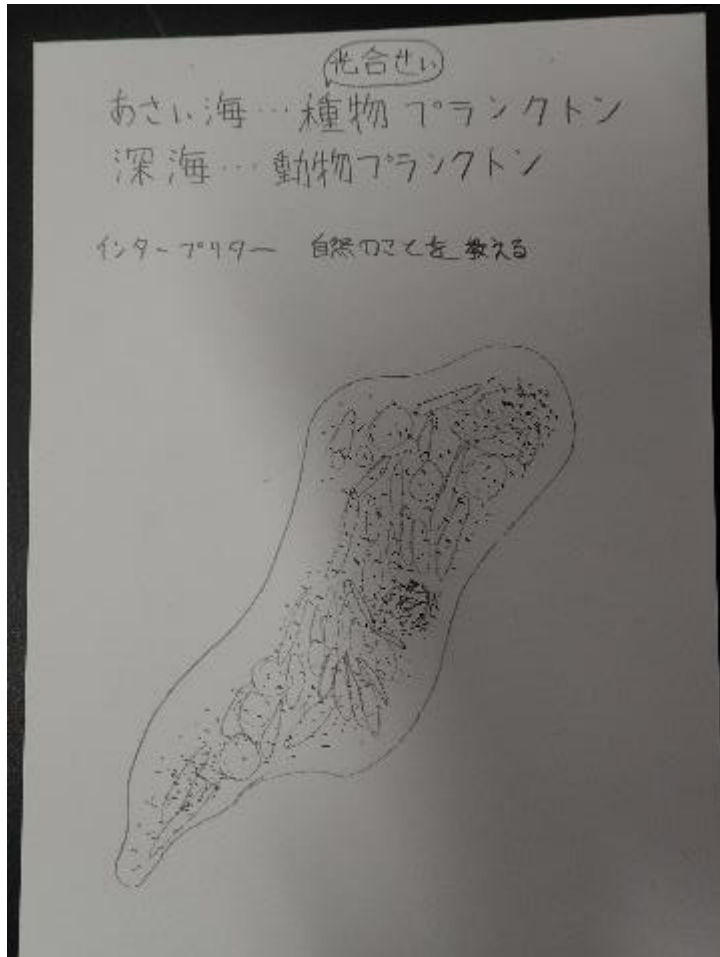 光合せい
あさい海…種物プランクトン
深海…動物プランクトン
インタープリター 自然のことを教える